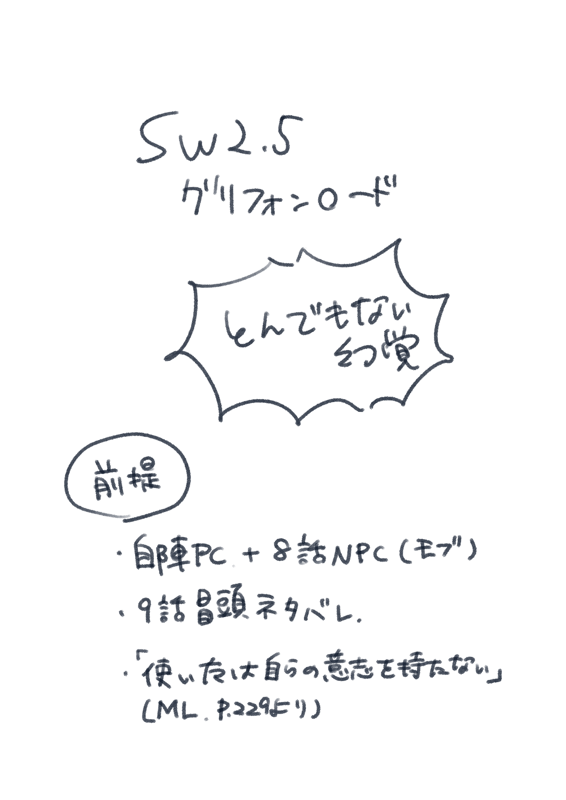 SW2.5
グリフォンロード
とんでもない
幻覚
前提
・自陣PC + 8話NPC(モブ)
・9話冒頭ネタバレ.
・「使い魔は自らの意志を持たない」
(ML. P.229より)